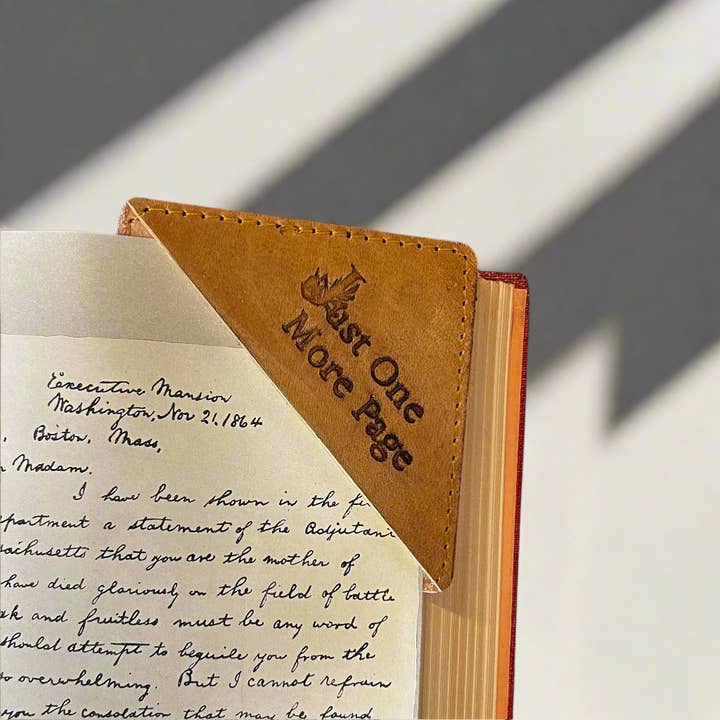 Just One
More Page
Executive Mansion
Washington, Nov 21, 1864
Boston, Mass,
Madam.
I have been shown in the
a statement of the Adjutan
that you are the mother of
have died gloriously on the field of battle
and fruitless must be any word of
should attempt to beguile you from the
so overwhelming. But I cannot refrain
you the consolation that may be found